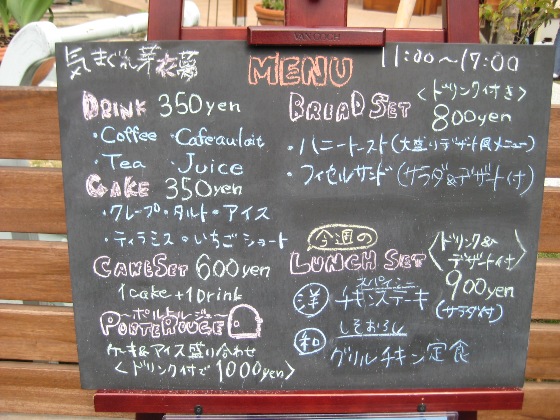 気まぐれ芽衣夢
MENU
11:00〜17:00
DRINK 350yen
・Coffee ・Cafe au lait
・Tea ・Juice
CAKE 350yen
・クレープ・タルト・アイス
・ティラミス・いちごショート
CAKE SET 600yen
1cake+1Drink
〜ポルトルージュ〜
PORTEROUGE
ケーキ&アイス盛り合わせ
<ドリンク付で1000yen>
BREAD SET
<ドリンク付き>
800yen
・ハニートースト(大盛りデザート風メニュー)
・フィセルサンド(サラダ&デザート付)
今週の
LUNCH SET
<ドリンク&デザート付>
900yen
(サラダ付)
洋 スパイシーチキンステーキ
和 しそおろし
グリルチキン定食